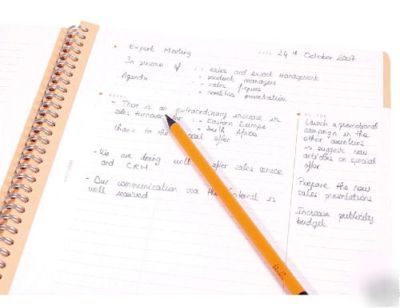 Export Meeting
24th October 2007
In presence of : - sales and export management
- product managers
Agenda - sales figures
- presentation
- There is an extraordinary increase in
sales turnover - Eastern Europe
- South Africa
thanks to the special offer
- We are doing well after sales service
and CRM
- Our communication via the internet is
well received
Launch a promotional
campaign in the
other countries
suggest new
articles on special
offer
Prepare the new
sales presentations
Increase publicity
budget